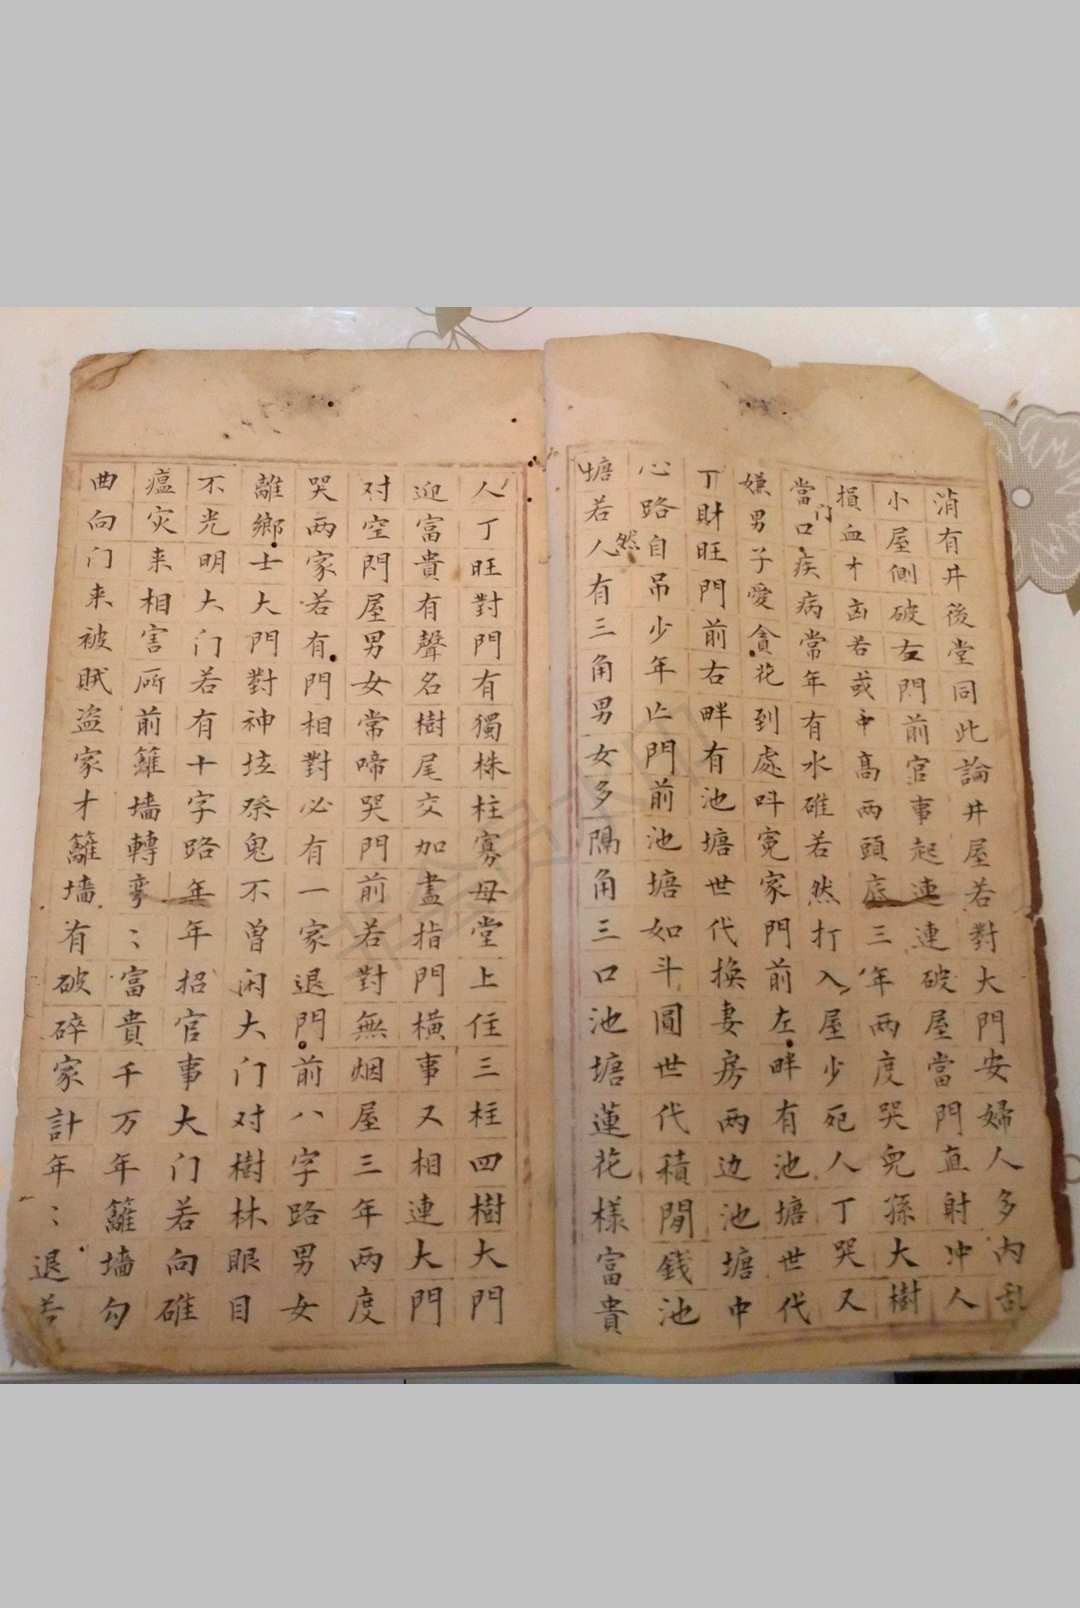 消有井後堂同此論井屋若對大門安婦人多内乱
小屋側破左門前官事起連連破屋當門直射冲人
損血才凶若或中高兩頭底三年兩度哭兒孫大樹
當門口疾病常年有水碓若然打入屋少死人丁哭又
嫌男子愛貪花到處呌寃家門前左畔有池塘世代
丁財旺門前右畔有池塘世代換妻房两边池塘中
心路自然吊少年亡門前池塘如斗圓世代積閒錢池
塘若人有三角男女多隔角三口池塘蓮花樣富貴
人丁旺對門有獨株柱寡母堂上住三柱四樹大門
迎富貴有聲名樹尾交加盡指門橫事又相連大門
对空門屋男女常啼哭門前若對無烟屋三年两度
哭兩家若有門相對必有一家退門前八字路男女
離鄉士大門對神坛祭鬼不曾闲大门对樹林眼目
不光明大门若有十字路年年招官事大门若向碓
瘟灾来相害所前籬墻轉弯：富貴千万年籬墙勾
曲向门来被賊盗家才籬墙有破碎家計年：退若